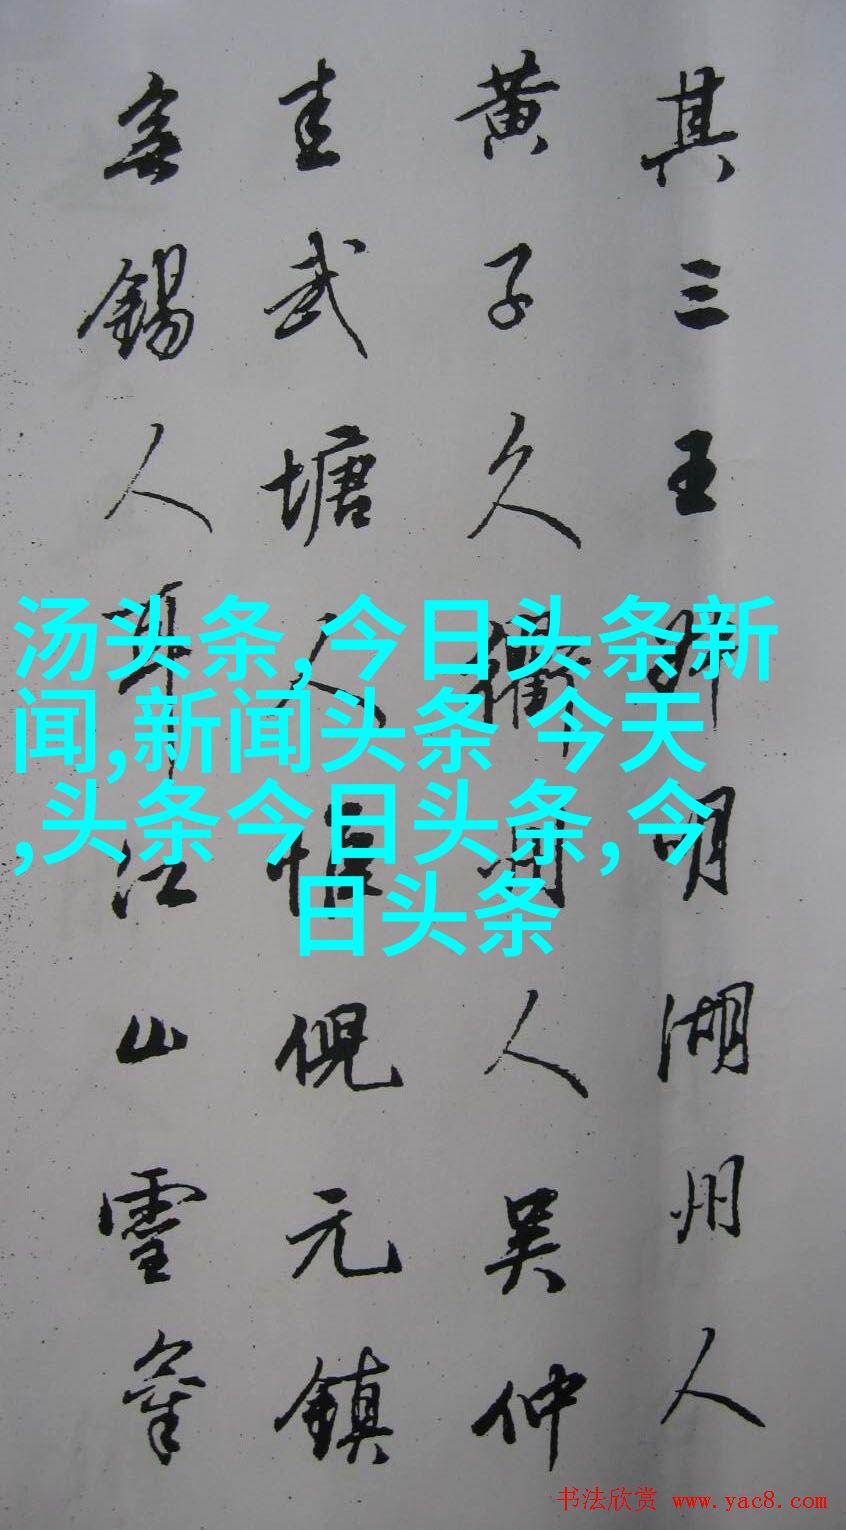 其三王叔明湖州人
黄子久衢州人吴仲
圭武塘人惟倪元鎮
無錫人耳江山靈氣
汤头条,今日头条新
闻,新闻头条 今天
,头条今日头条,今
日头条
书法欣赏 www.yac8.com